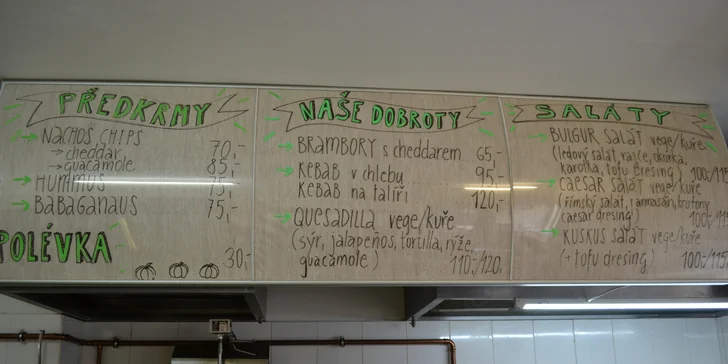 PŘEDKRMY
NACHOS CHIPS
→ cheddar 70,-
→ guacamole 85,-
→ HUMMUS 75,-
→ BABAGANAUS 75,-
POLÉVKA 30,-
NAŠE DOBROTY
→ BRAMBORY s cheddarem 65,-
→ KEBAB v chlebu 95,-
KEBAB na talíři 120,-
→ QUESADILLA vege/kuře
(sýr, jalapeños, tortilla, rýže,
guacamole) 110,-/120,
SALÁTY
→ BULGUR SALÁT vege/kuře
(ledový salát, rajče, okurka,
karotka, tofu dresing) 100,-/115
→ CAESAR SALÁT vege/kuře
(římský salát, parmasán, krutony
caesar dresing) 100,-/115
→ KUSKUS SALÁT vege/kuře
(+ tofu dresing) 100,-/115